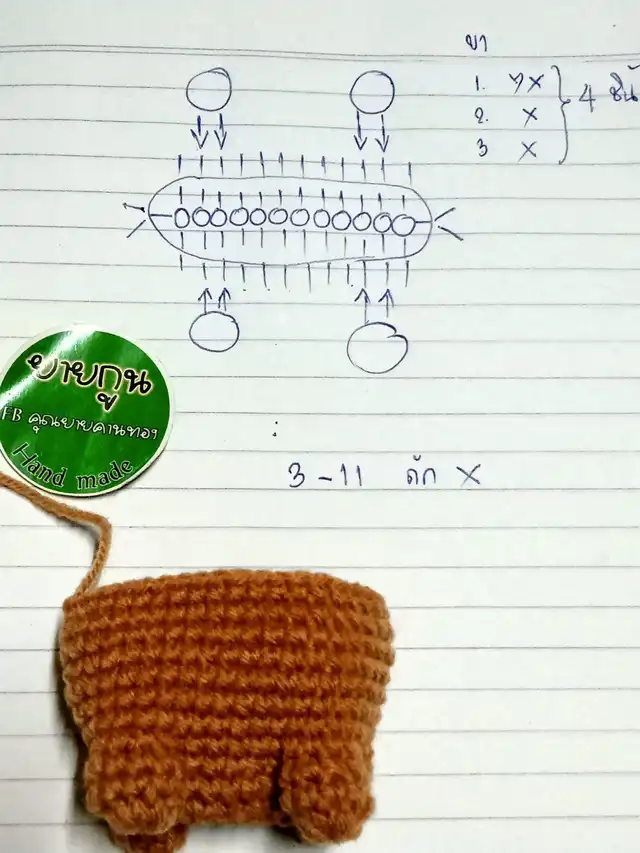 ขา
1. 7X
2. X
3 X
4 ชิ้น
ยายกูน
FB คุณยายคานทอง
Hand made
3-11 ถัก X